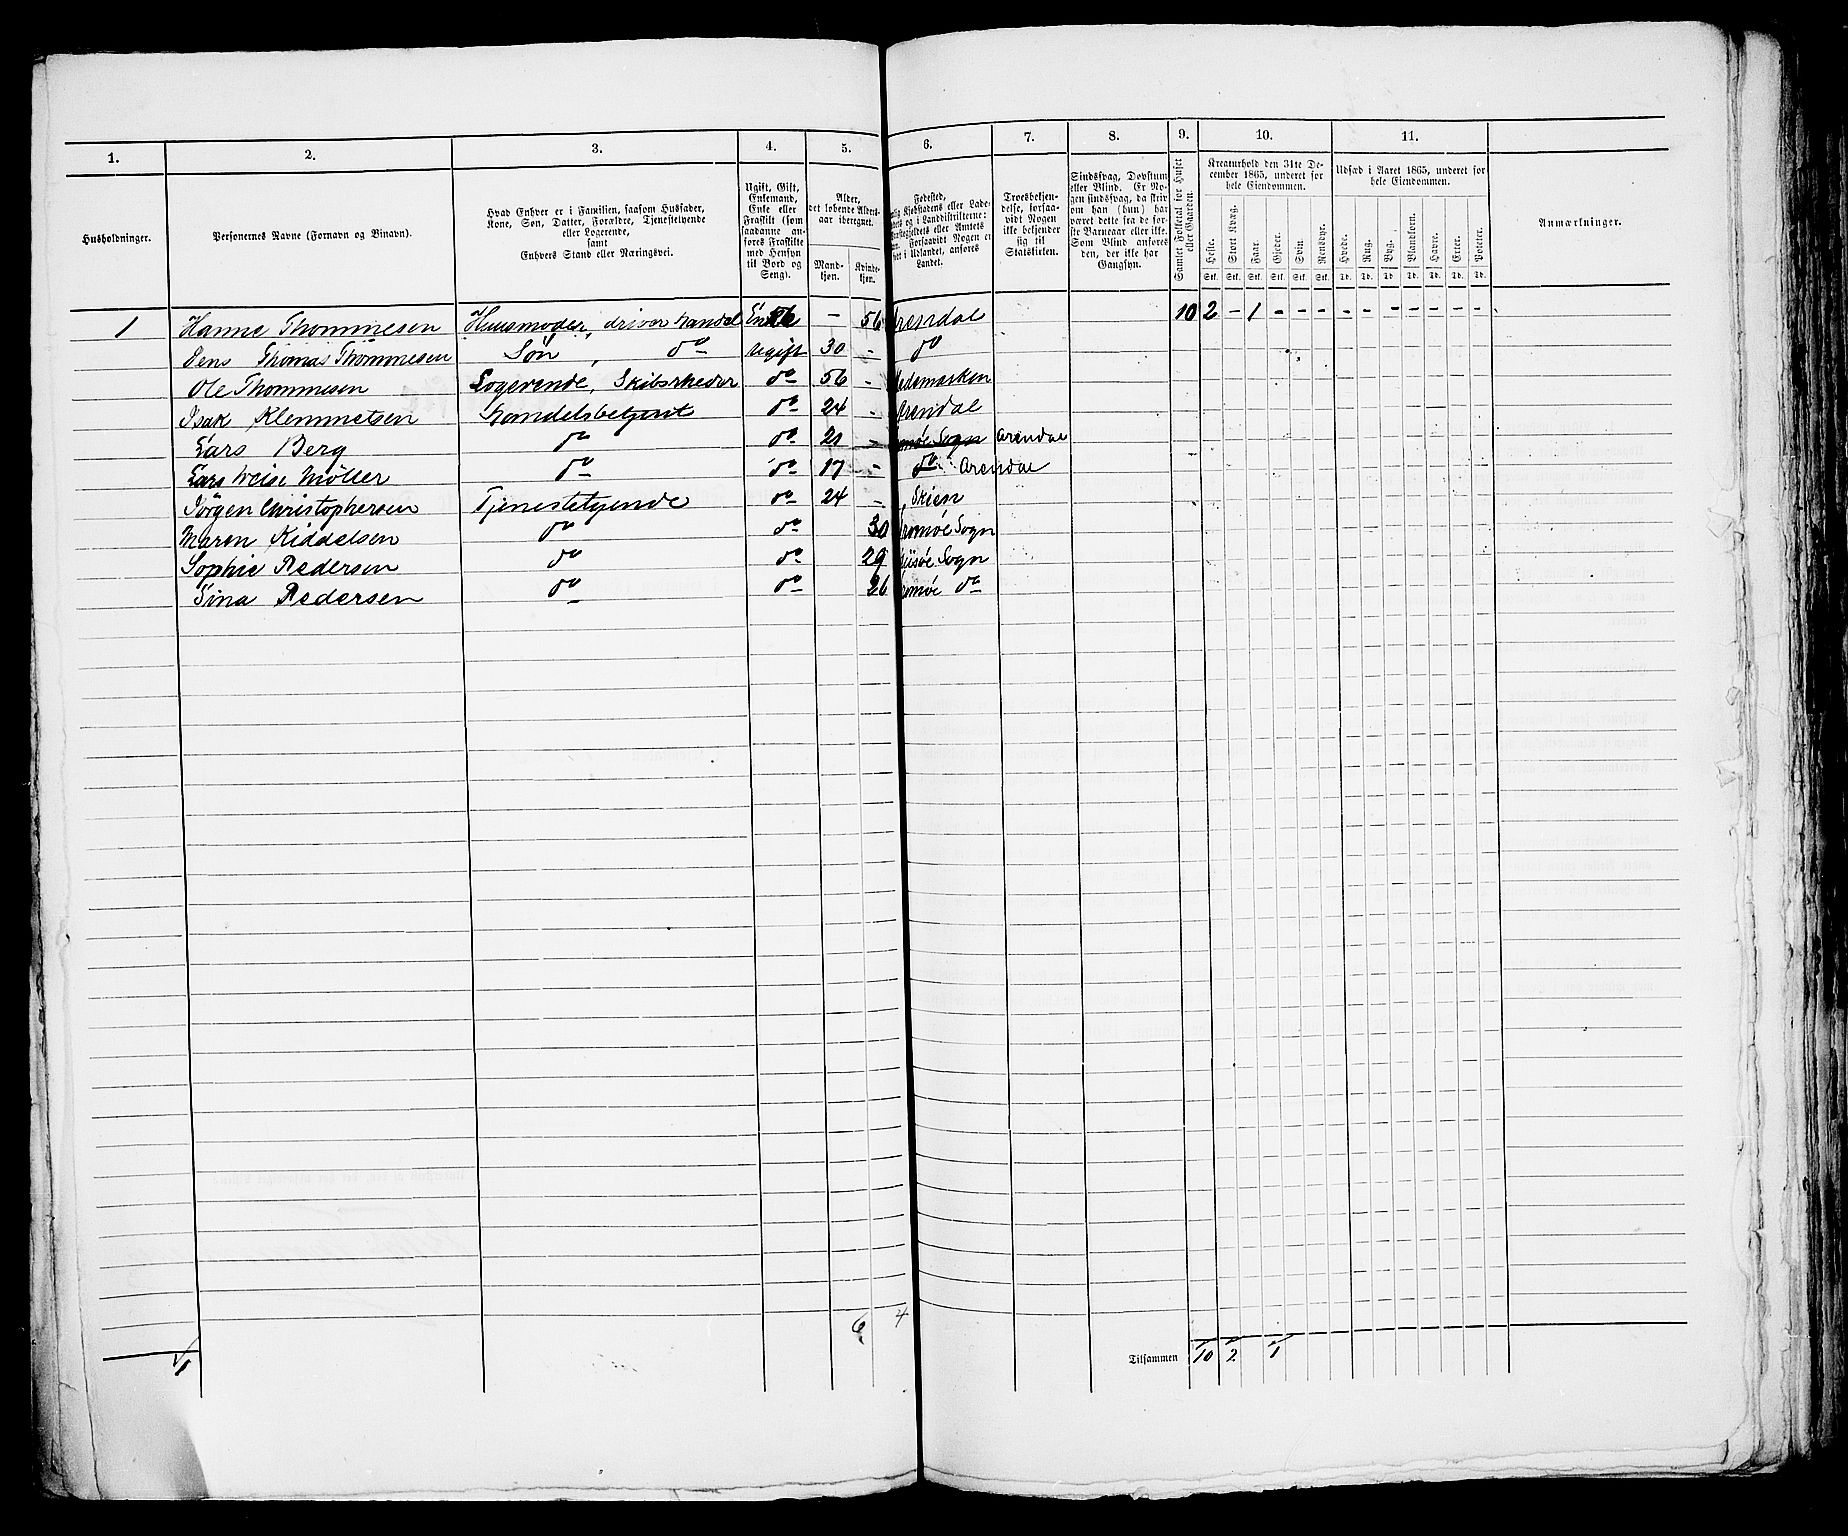 1. 2. 3. 4. 5. 6. 7. 8. 9. 10. 11.
Husholdninger.
Personernes Navne (Fornavn og Binavn).
Hvad Enhver er i Familien, saasom Husfader,
Kone, Søn, Datter, Forældre, Tjenestetyende
eller Logerende,
samt
Enhvers Stand eller Næringsvei.
Ugift, Gift,
Enkemand,
Enke eller
Fraskilt (som
saadanne an-
føres Fraskilte
med Hensyn
til Bord og
Seng).
Alder,
det løbende Alders-
aar iberegnet.
Mand-
kjøn.
Kvinde-
kjøn.
Fødested,
Kjøbstadens eller Lade-
og i Landdistrikterne:
eller Amtets
Forsaavidt Nogen er
i Udlandet, anføres
Landet.
Troesbekjen-
delse, forsaa-
vidt Nogen
ikke bekjender
sig til
Statskirken.
Sindssvag, Døvstum
eller Blind. Er No-
gen sindssvag, da skriv
om han (hun) har
været dette fra de før-
ste Barneaar eller ikke.
Som Blind anføres
den, der ikke har
Gangsyn.
Samlet Folketal for Huset
eller Gaarden.
Kreaturhold den 31te De-
cember 1865, underet for
hele Eiendommen.
Heste. Stort Kvæg. Faar. Gjeder. Svin. Rensdyr.
Stk. Stk. Stk. Stk. Stk. Stk.
Udsæd i Aaret 1865, underet for
hele Eiendommen.
Hvede. Rug. Byg. Blandkorn. Havre. Erter. Poteter.
Td. Td. Td. Td. Td. Td. Td.
Anmærkninger.
1 Hanne Thommesen Huusmoder, driver handel Enke - 56 Arendal 10 2 - 1 - - - - - - - - - -
Jens Thomas Thommesen Søn, do Ugift 30 - do
Ole Thommesen Logerende, Skibsrheder do 56 - Hedemarken
Isak Klemmetsen Handelsbetjent do 24 - Arendal
Lars Berg do do 21 - Sogn Arendal
Lars Møller do do 17 - do Arendal
Jørgen Christophersen Tjenestetyende do 24 - Skien
Maren Kiddelsen do do 30 Tromøe Sogn
Sophie Pedersen do do 29 Sogn
Sina Pedersen do do 26 Tromøe do
6 4
1 Tilsammen 10 2 1